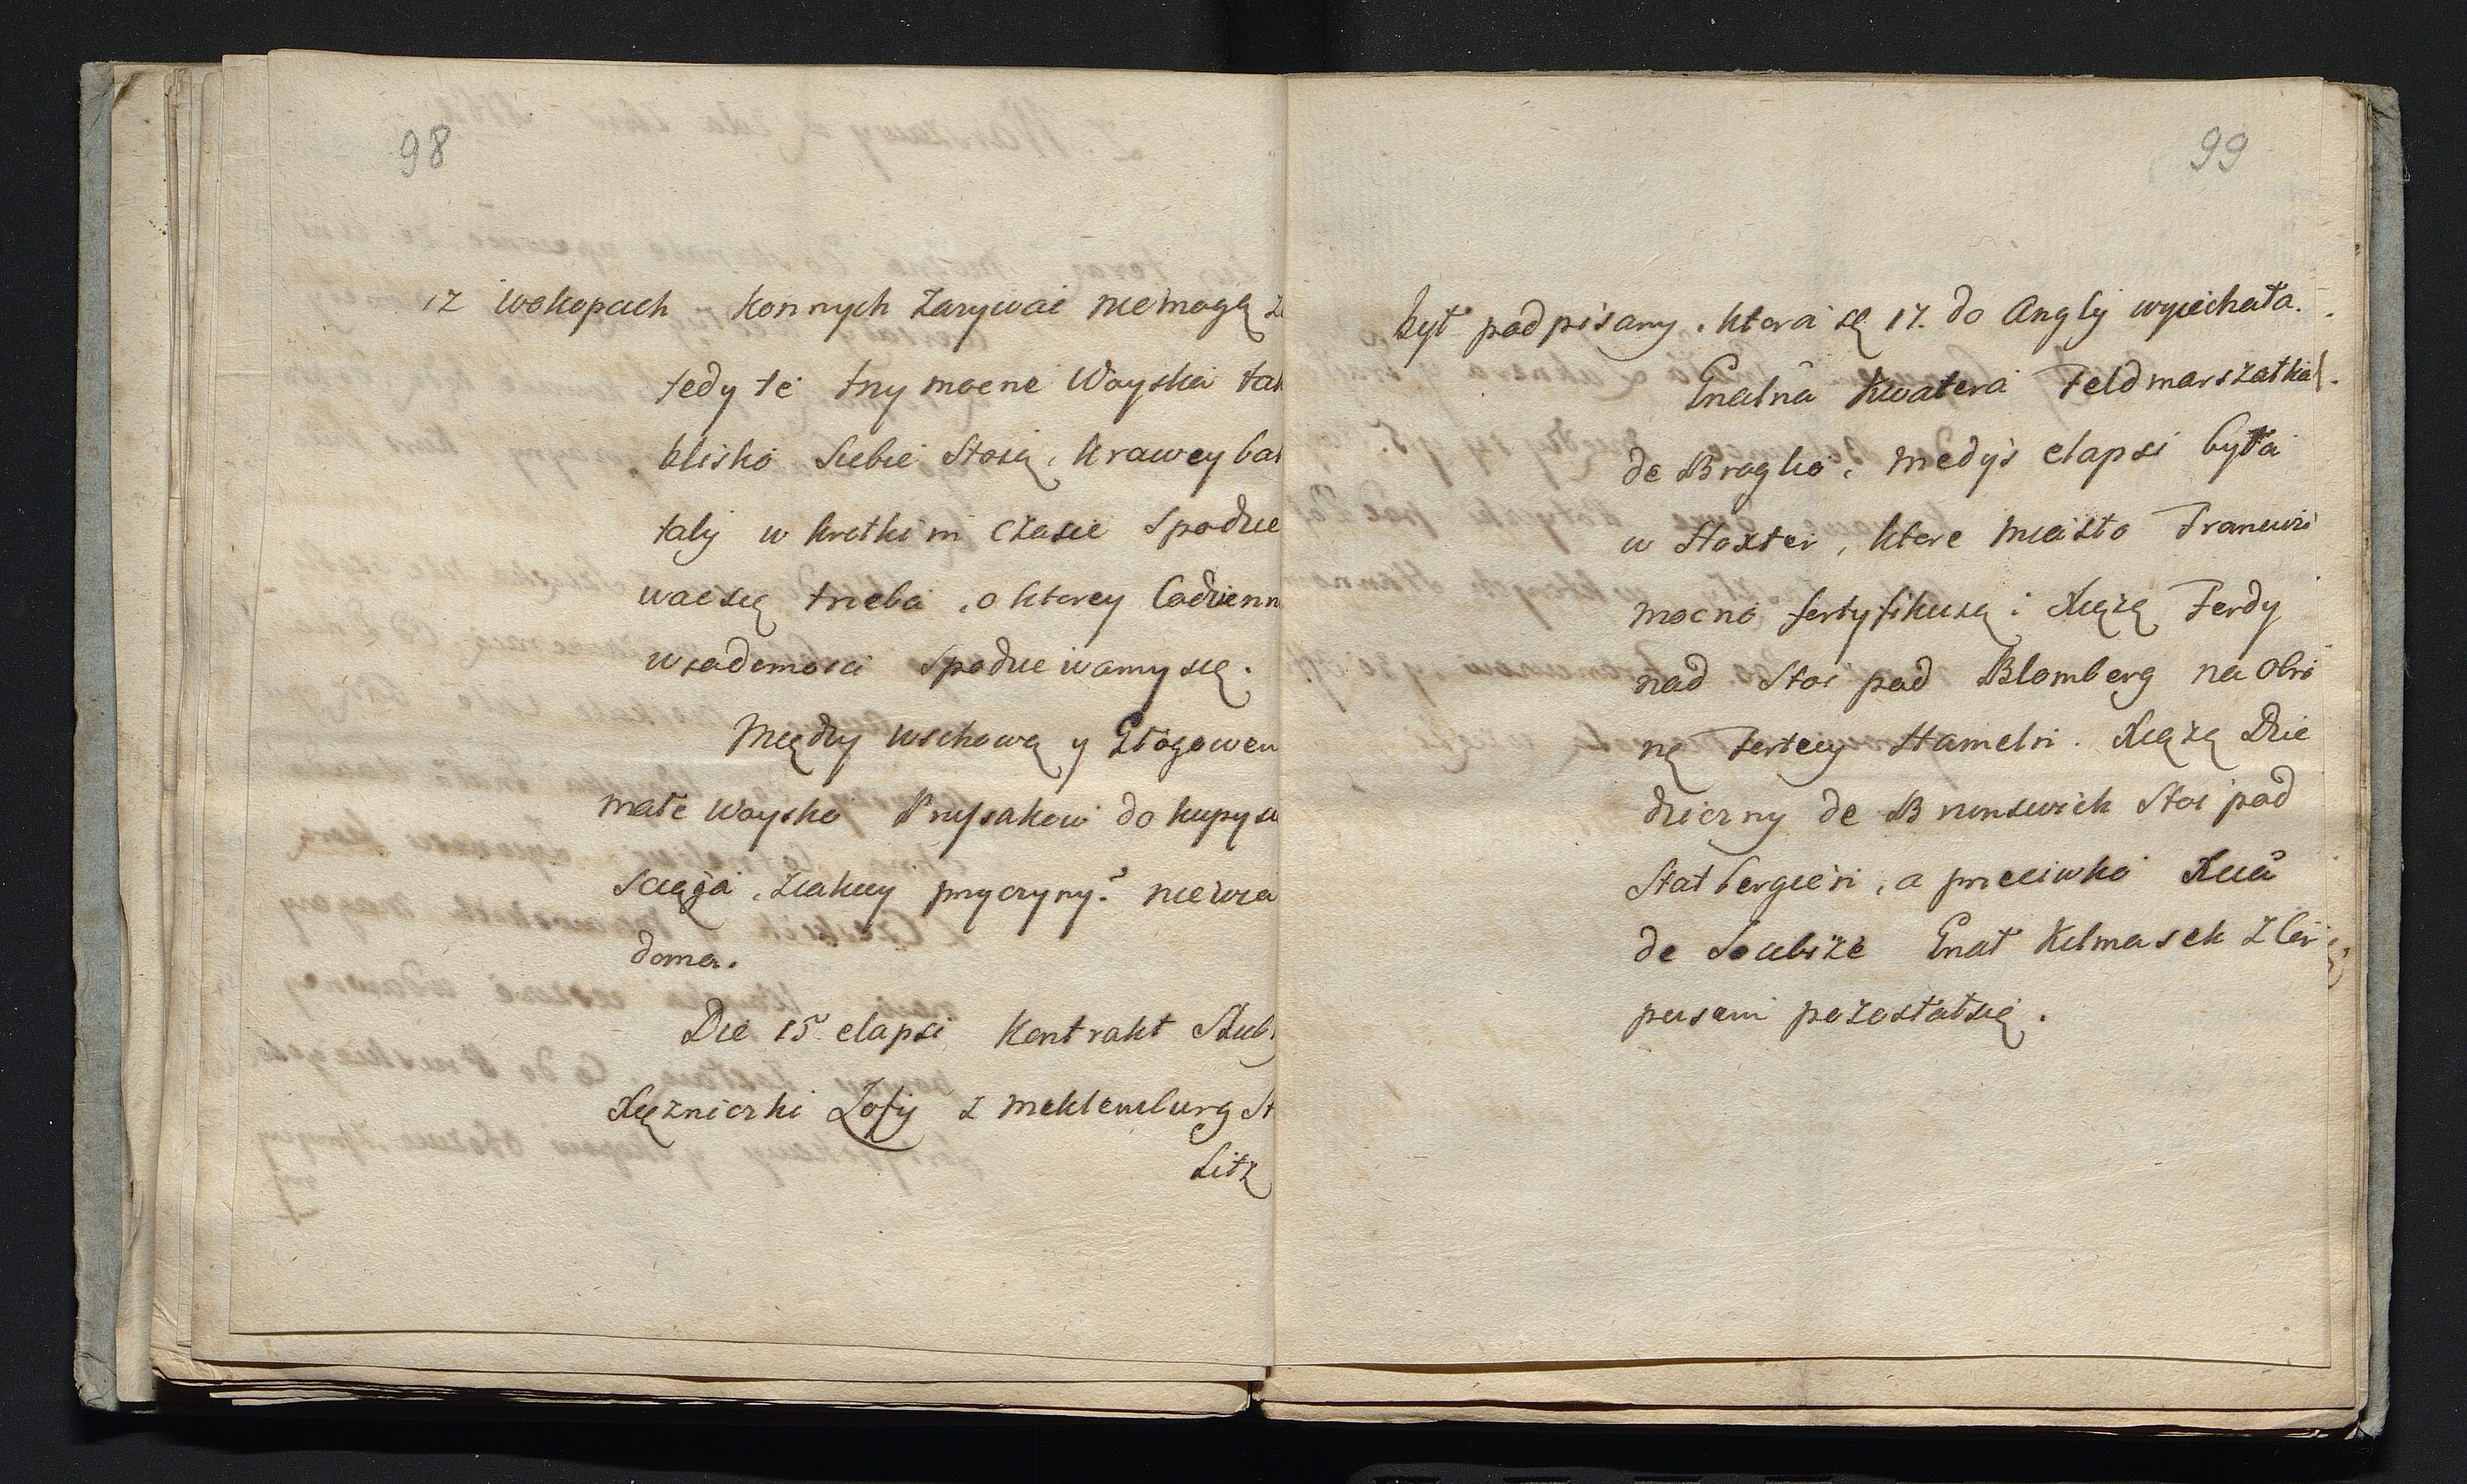 98
iz wokopach konnych zarywai niemogą
tedy te trzy mocne Woyska
blisko siebie stoią, krawey bat
taly w krotkim czasie spodzie
waćsię trzeba, o ktorey Codzienn
wiadomosci spodziewamysię.
Między wschową y Głogowem
małe Woysko Prussakow do kupy
sciąga, ziakiey przyczyny? niewia
doma.
Die 15 elapsi Kontrakt Slub
Xiężniczki Zofij z Meklemburg St
Litz
99
był podpisany. ktora się 17. do Anglij wyiechała.
Gnalna Kwatera Feldmarszałka
de Broglio, medys elapsi była
w Hoxter, ktore miasto Francuzi
mocno fortyfikuią i Xiążą Ferdy
nad stoi pod Blomberg na obro
nę Fortecy Hameln. Xiążą Dzie
dziczny de Brunswick stoi pod
Statbergien, a przeciwko Xcia
de Soubize Gnał Kilmasek z kor
pusem pozostałsię.